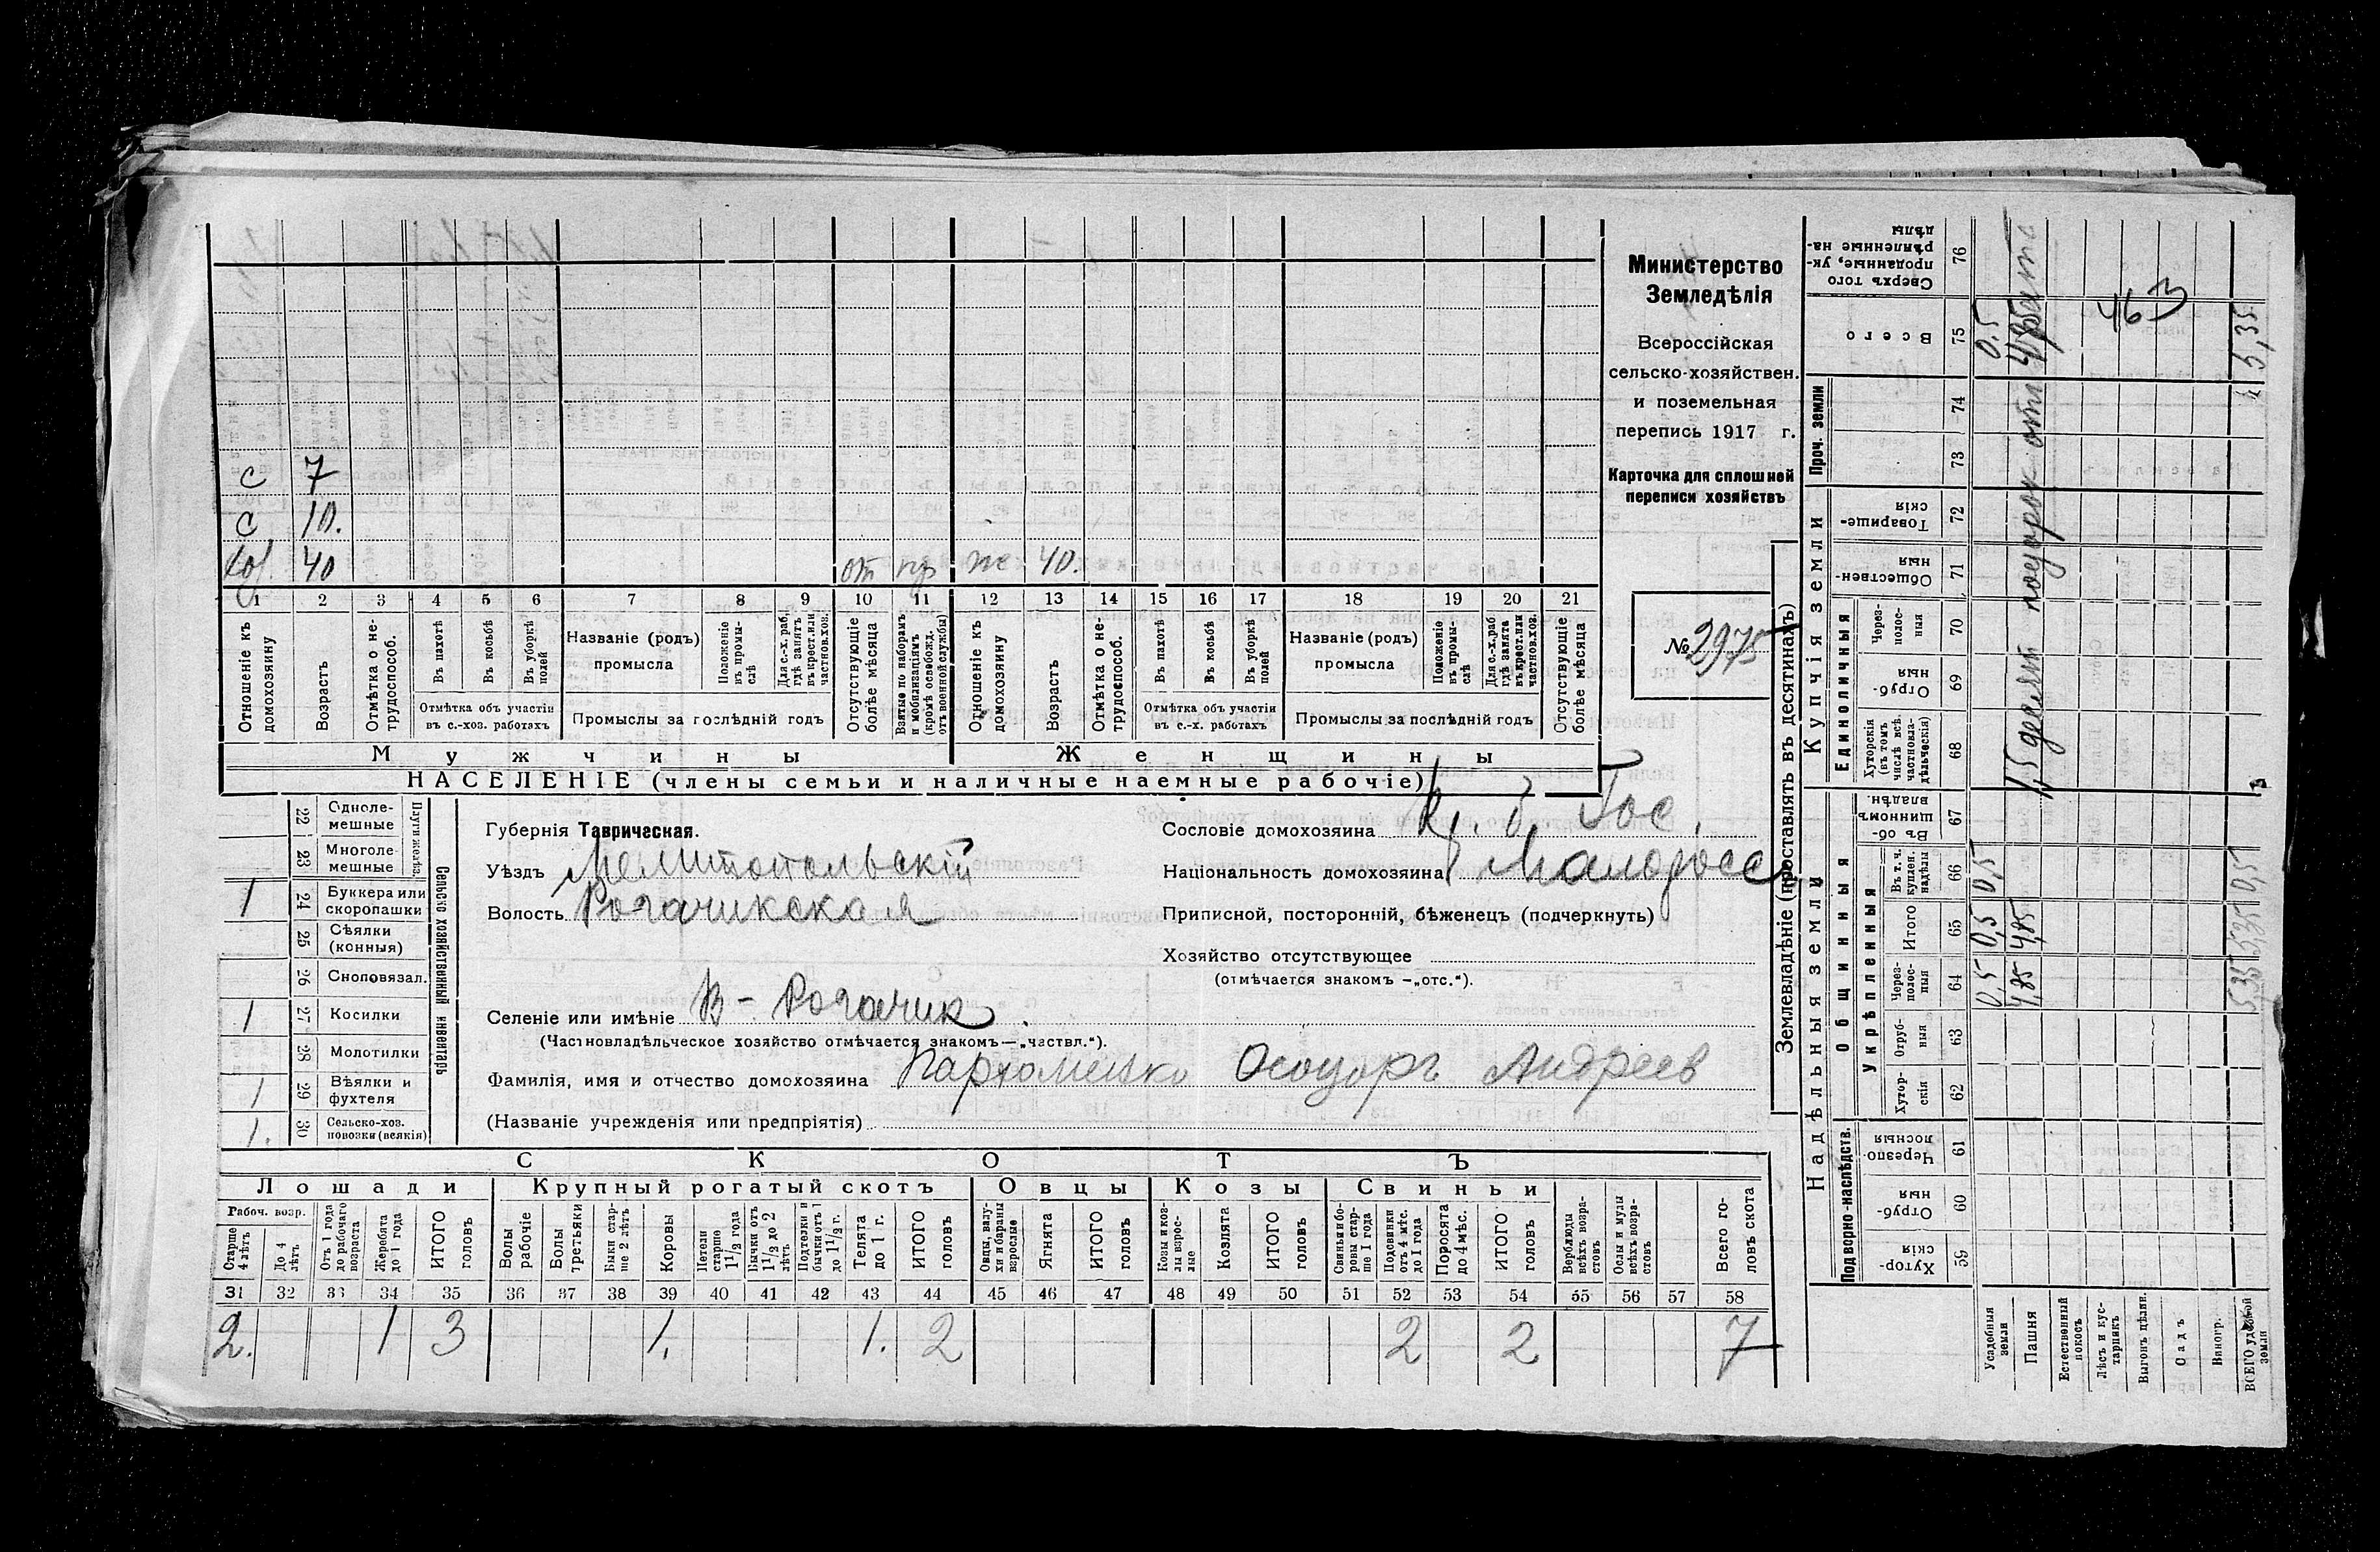 с 7
с 10.
хоз. 40 от же 40.
1 2 3 4 5 6 7 8 9 10 11 12 13 14 15 16 17 18 19 20 21
Отношеніе къ домохозяину
Возрастъ
Отмѣтка о не-трудоспособ.
Въ пахотѣ
Въ косьбѣ
Въ уборкѣ полей
Отмѣтка объ участіи
въ с.-хоз. работахъ
Названіе (родъ)
промысла
Положеніе въ промы-слѣ
Для с.-х. раб. гдѣ занятъ въ крест. или частновл. хоз.
Промыслы за послѣдній годъ
Отсутствующіе болѣе мѣсяца
Взятые по наборамъ и мобилизаціямъ (кромѣ освобожд. отъ военной службы)
Отношеніе къ домохозяину
Возрастъ
Отмѣтка о не-трудоспособ.
Въ пахотѣ
Въ косьбѣ
Въ уборкѣ полей
Отмѣтка объ участіи
въ с.-х. работахъ
Названіе (родъ)
промысла
Положеніе въ промы-слѣ
Для с.-х. раб. гдѣ занята въ крест. или частнов. хоз.
Промыслы за послѣдній годъ
Отсутствующіе болѣе мѣсяца
Мужчины Женщины
НАСЕЛЕНІЕ (члены семьи и наличные наемные рабочіе)
Министерство
Земледѣлія
Всероссійская
сельско-хозяйствен.
и поземельная
перепись 1917 г.
Карточка для сплошной
переписи хозяйствъ
№ 2975
22 Одноле-мешные
23 Многоле-мешные
Плуги желѣз.
1 24 Буккера или скоропашки
25 Сѣялки (конныя)
26 Сноповязал.
1 27 Косилки
28 Молотилки
1 29 Вѣялки и фухтеля
1. 30 Сельско-хоз. повозки (всякія)
Сельско хозяйственный инвентарь
Губернія Таврическая.
Уѣздъ Мелитопольскій
Волость Рогачикская
Селеніе или имѣніе В-Рогачик.
(Частновладѣльческое хозяйство отмѣчается знакомъ—„частвл.“).
Фамилія, имя и отчество домохозяина Пархоменко Ѳеодоръ Андреев
(Названіе учрежденія или предпріятія)
Сословіе домохозяина Кр. б. Гос.
Національность домохозяина Малоросс
Приписной, посторонній, бѣженецъ (подчеркнуть)
Хозяйство отсутствующее
(отмѣчается знакомъ —„отс.“).
СКОТЪ
Лошади Крупный рогатый скотъ Овцы Козы Свиньи
Рабоч. возр.
Старше 4 лѣтъ
До 4 лѣтъ
Отъ 1 года до рабочаго возраста
Жеребята до 1 года
ИТОГО головъ
Волы рабочіе
Волы третьяки
Быки стар-ше 2 лѣтъ
Коровы
Нетели старше 1 1/2 года
Бычки отъ 1 1/2 до 2 лѣтъ
Подтелки и бычки отъ 1 до 1 1/2 г.
Телята до 1 г.
ИТОГО головъ
Овцы, валу-хи и бараны взрослые
Ягнята
ИТОГО головъ
Козы и коз-лы взрос-лые
Козлята
ИТОГО головъ
Свиньи и бо-ровы стар-ше 1 года
Подсвинки отъ 4 мѣс. до 1 года
Поросята до 4 мѣс.
ИТОГО головъ
Верблюды всѣхъ возра-стовъ
Ослы и мулы всѣхъ возра-стовъ
Всего го-ловъ скота
31 32 33 34 35 36 37 38 39 40 41 42 43 44 45 46 47 48 49 50 51 52 53 54 55 56 57 58
2. 1 3 1. 1. 2 2 2 7
Землевладѣніе (проставлять въ десятинахъ)
Надѣльныя земли Купчія земли Проч. земли
Подворно-наслѣдств. Общинныя Единоличныя
Укрѣпленныя
Хутор-скія 59
Отруб-ныя 60
Черезпо-лосныя 61
Хутор-скія 62
Отруб-ныя 63
Черезполос-ныя 64
Итого 65
Въ т. ч. куплен. надѣлы 66
Въ об-щинномъ владѣн. 67
Хуторскія (въ томъ числѣ всѣ частновла-дѣльческія) 68
Отруб-ныя 69
Через-полос-ныя 70
Обществен-ныя 71
Товарище-скія 72
73
74
Всего 75
Сверхъ того проданные, ук-рѣпленные на-дѣлы 76
Усадебныя земли 0,5 0,5 0,5 0.5
Пашня 4,85 4,85 4,85
Естественный покосъ
Лѣсъ и кус-тарникъ
Выгонъ цѣлин.
Садъ
Виногр.
ВСЕГО удобной земли 5,35 5,35 0,5 5,35
463